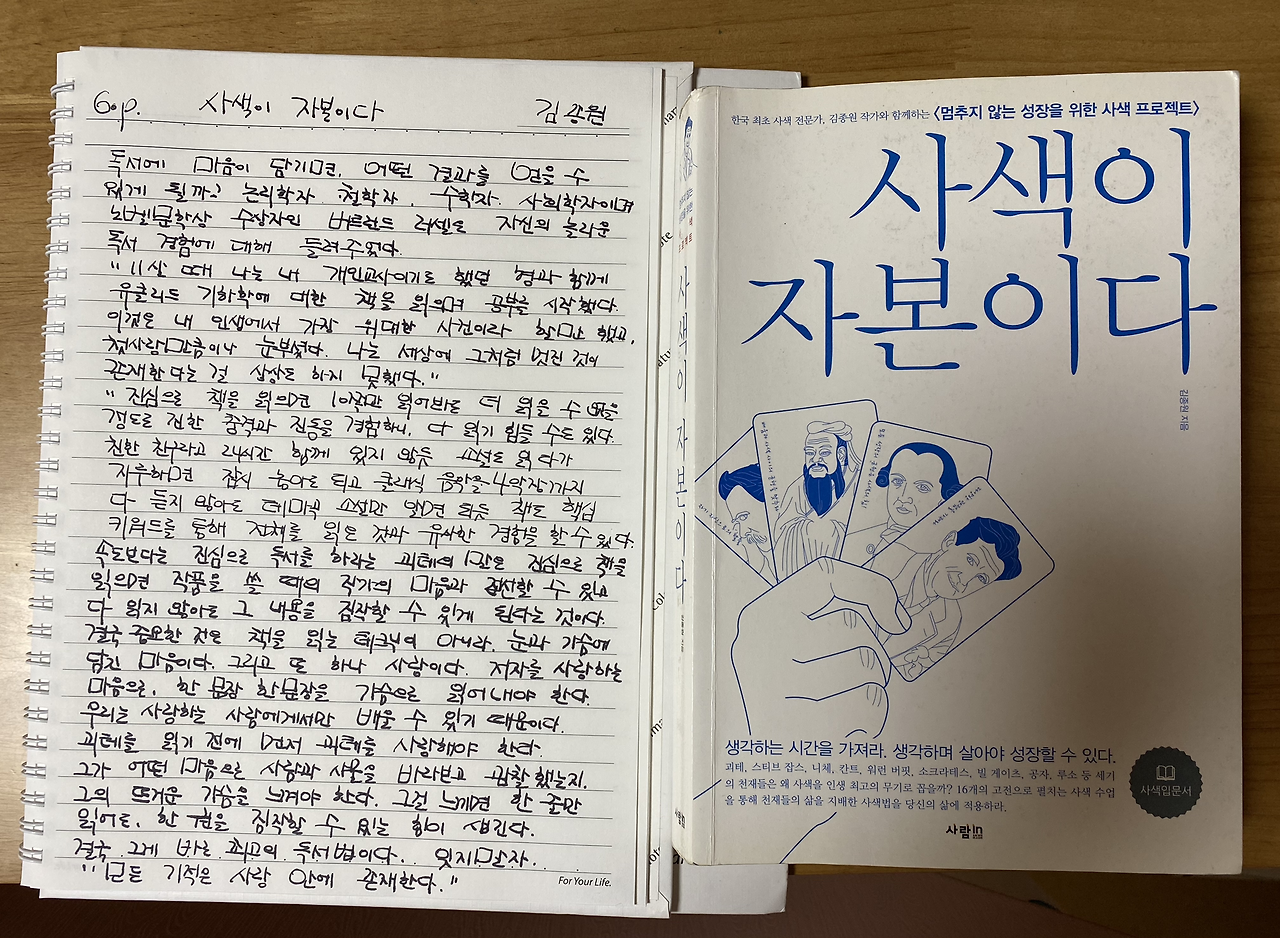 60p. 사색이 자본이다 김종원
독서에 마음이 담기면, 어떤 결과를 얻을 수
있게 될까? 논리학자, 철학자, 수학자, 사회학자이며
노벨문학상 수상자인 버트런드 러셀은 자신의 놀라운
독서 경험에 대해 들려주었다.
"11살 때 나는 내 개인교사이기도 했던 형과 함께
유클리드 기하학에 대한 책을 읽으며 공부를 시작했다.
이것은 내 인생에서 가장 위대한 사건이라 할만 했고,
첫사랑만큼이나 눈부셨다. 나는 세상에 그처럼 멋진 것이
존재한다는 걸 상상도 하지 못했다."
"진심으로 책을 읽으면 10장만 읽어봐도 더 읽을 수 없을
정도로 진한 충격과 진동을 경험하니, 다 읽기 힘들 수도 있다.
친한 친구라고 24시간 함께 있지 않듯 소설도 읽다가
지루하면 잠시 놓아도 되고 클래식 음악을 4악장까지
다 듣지 않아도 테마곡 소절만 알면 되듯 책도 핵심
키워드를 통해 전체를 읽은 것과 유사한 경험을 할 수 있다.
속도보다는 진심으로 독서를 하라는 괴테의 말은 진심으로 책을
읽으면 작품을 쓸 때의 작가의 마음과 접선할 수 있고
다 읽지 않아도 그 내용을 짐작할 수 있게 된다는 것이다.
결국 중요한 것은 책을 읽는 테크닉이 아니라, 눈과 가슴에
담긴 마음이다. 그리고 또 하나 사랑이다. 저자를 사랑하는
마음으로, 한 문장 한 문장을 가슴으로 읽어내야 한다.
우리는 사랑하는 사람에게서만 배울 수 있기 때문이다.
괴테를 읽기 전에 먼저 괴테를 사랑해야 한다.
그가 어떤 마음으로 사람과 사물을 바라보고 관찰했는지.
그의 뜨거운 가슴을 느껴야 한다. 그걸 느끼면 한 줄만
읽어도, 한 권을 짐작할 수 있는 힘이 생긴다.
결국 그게 바로 최고의 독서법이다. 잊지말자.
"모든 기적은 사랑 안에 존재한다."
For Your Life.
사색이 자본이다
한국 최초 사색 전문가, 김종원 작가와 함께하는 〈멈추지 않는 성장을 위한 사색 프로젝트〉
사색이
자본이다
김종원 지음
생각하는 시간을 가져라. 생각하며 살아야 성장할 수 있다.
괴테, 스티브 잡스, 니체, 칸트, 워런 버핏, 소크라테스, 빌 게이츠, 공자, 루소 등 세기
의 천재들은 왜 사색을 인생 최고의 무기로 꼽을까? 16개의 고전으로 펼치는 사색 수업
을 통해 천재들의 삶을 지배한 사색법을 당신의 삶에 적용하라.
사색입문서
사람in